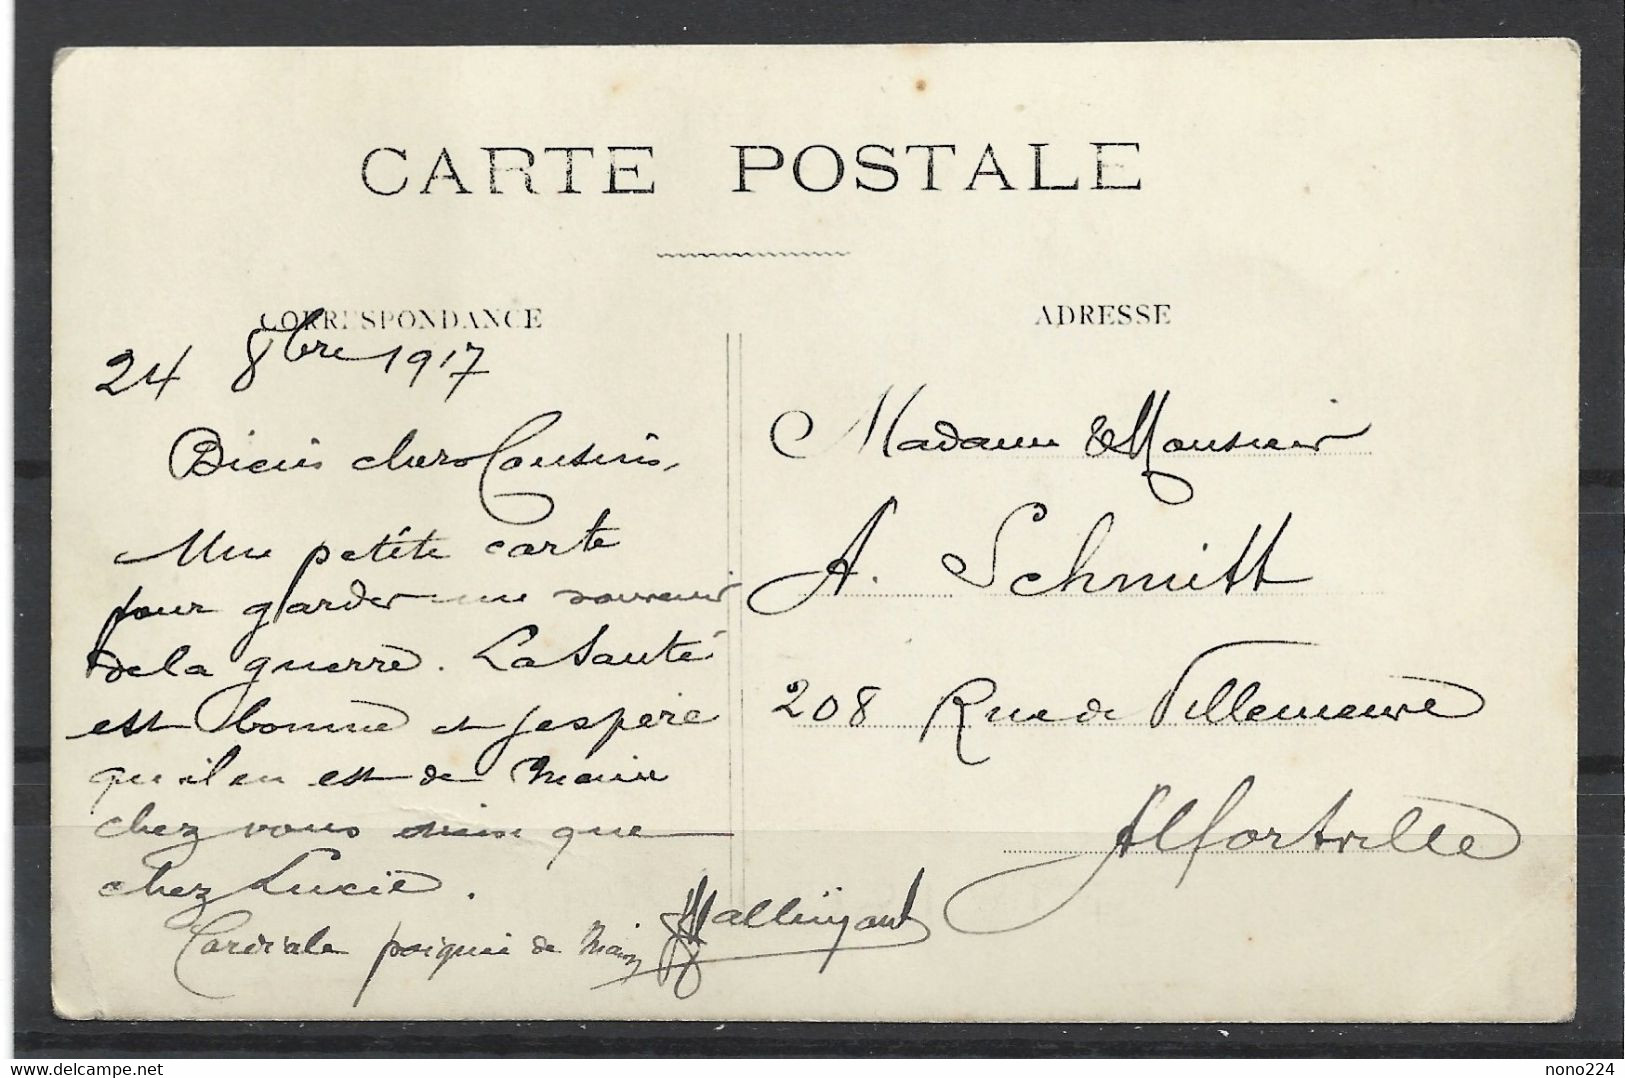 CARTE POSTALE
CORRESPONDANCE
24 8bre 1917
Biens chers Cousins,
Une petite carte
pour garder une souvenir
de la guerre. La Santé
est bonne et j'espère
qu'il en est de même
chez vous ainsi que
chez Lucie.
Cordiale poignée de main
ADRESSE
Madame & Monsieur
A. Schmitt
208 Rue de Villeneuve
Alfortville
nono224